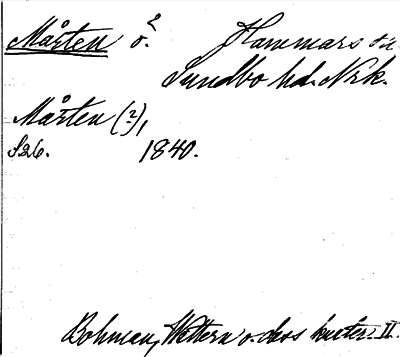 Mårten ö. Hammars sn
Sundbo hd. Nrk.
Mårten (2),
S26. 1840.
Bohman, Wettern o. dess kuster. II.